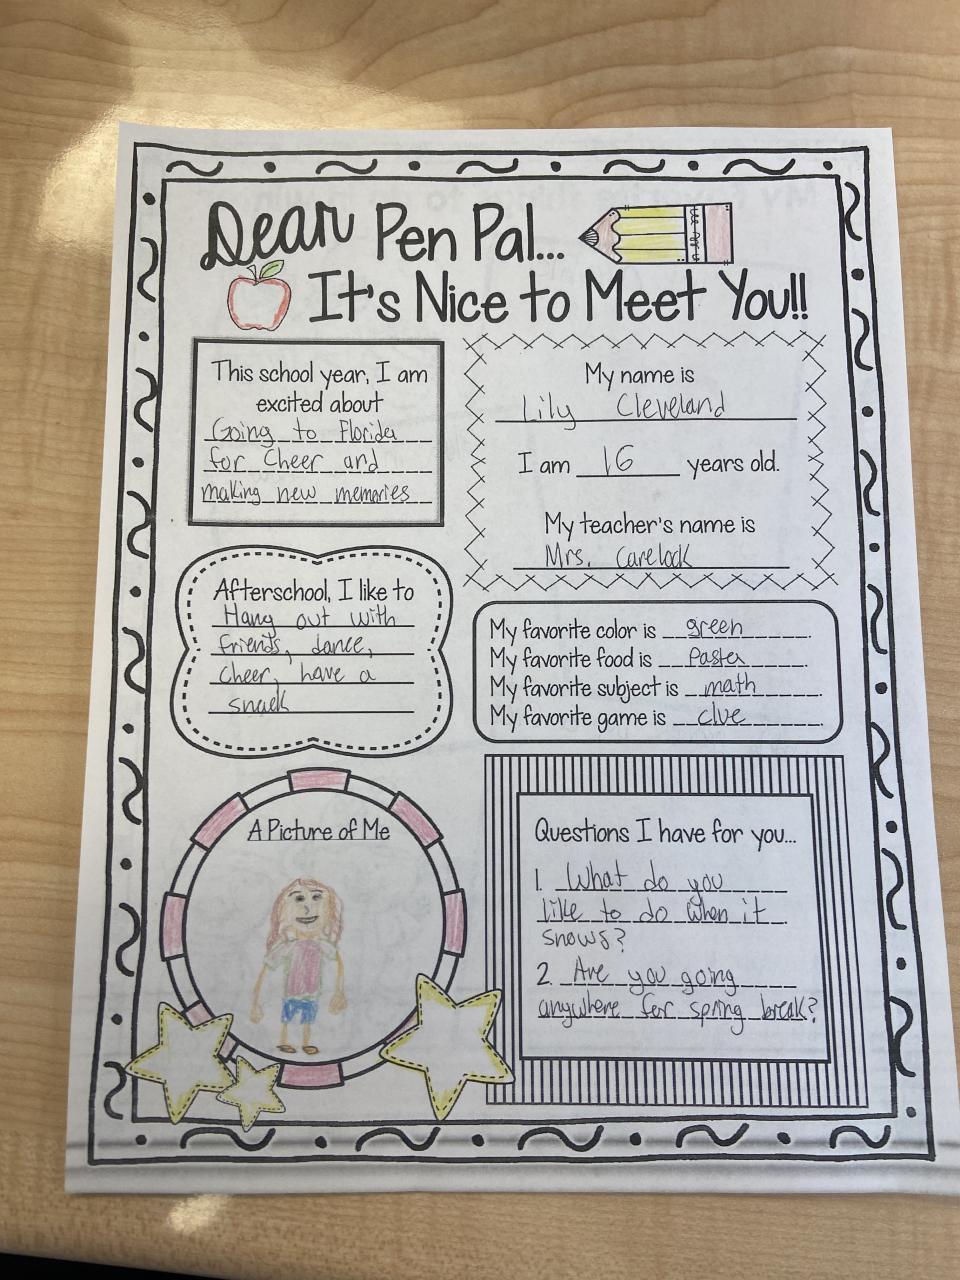 Dear Pen Pal...
It's Nice to Meet You!!
This school year, I am
excited about
Going to Florida
for Cheer and
making new memories
My name is
Lily Cleveland
I am 16 years old.
My teacher's name is
Mrs. Carelock
Afterschool, I like to
Hang out with
friends, dance,
Cheer, have a
snack
My favorite color is green.
My favorite food is Pasta.
My favorite subject is math.
My favorite game is clue.
A Picture of Me
Questions I have for you...
1. What do you
like to do when it
snows?
2. Are you going
anywhere for spring break?